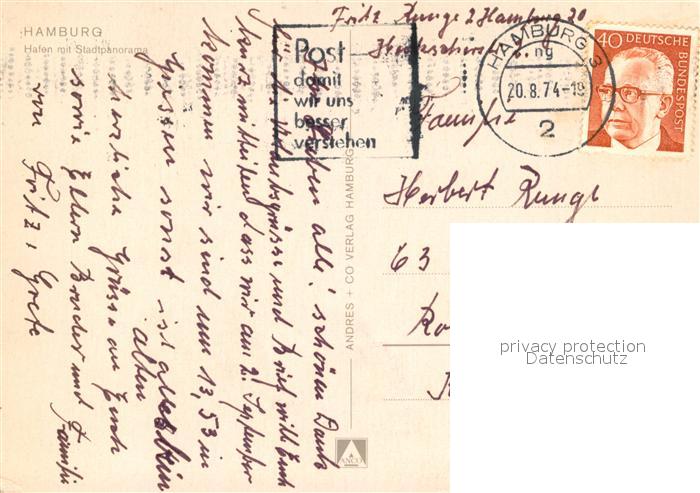 HAMBURG
Hafen mit Stadtpanorama
Ihr Lieben alle! schönen Dank
für Urlaubsgrüsse und Brief will Euch
kurz mitteilen dass wir am 2. September
kommen wir sind um 13,53 in
Giessen sonst ist alles beim
alten
herzliche Grüsse an Euch
sowie Eltern Bruder und Familie
von Fritz u. Grete
ANDRES + CO VERLAG HAMBURG
ANCO
Fritz Runge 2 Hamburg 20
Post
damit
wir uns
besser
verstehen
HAMBURG 3
ng
20.8.74-19
2
40 DEUTSCHE
BUNDESPOST
Familie
Herbert Runge
63
privacy protection
Datenschutz